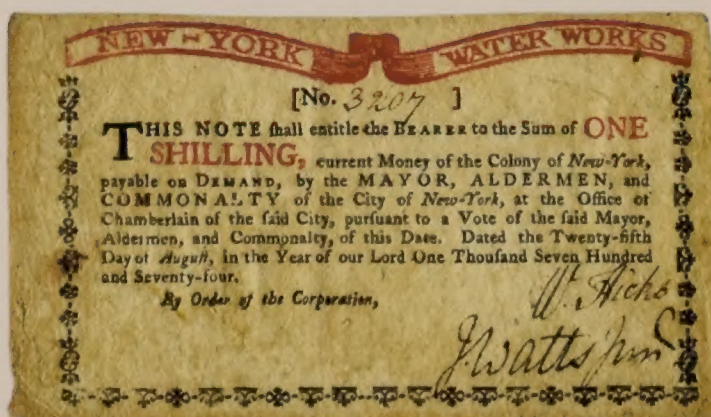 NEW-YORK WATER WORKS
[No. 3207 ]
THIS NOTE ſhall entitle the BEARER to the Sum of ONE
SHILLING, current Money of the Colony of New-York,
payable on DEMAND, by the MAYOR, ALDERMEN, and
COMMONALTY of the City of New-York, at the Office of
Chamberlain of the ſaid City, purſuant to a Vote of the ſaid Mayor,
Aldermen, and Commonalty, of this Date. Dated the Twenty-fifth
Day of Auguſt, in the Year of our Lord One Thouſand Seven Hundred
and Seventy-four.
By Order of the Corporation,
W. Hicks
J. Watts Junr